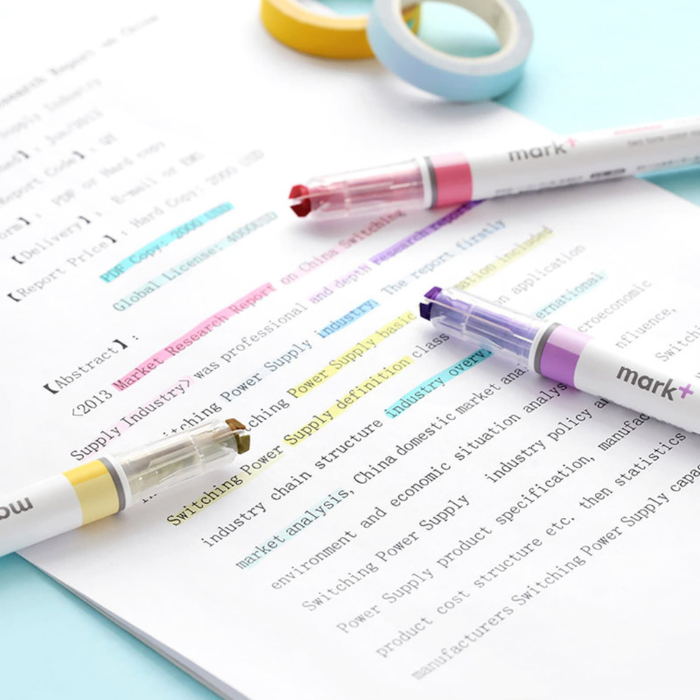 Research Report on China
Supply Industry
Jun/2013
Report Code】: QT
PDF or Hard copy
【Delivery】: E-mail or EMS
【Report Price】: Hard Copy: 2000 USD
PDF Copy: 2000 USD
Global License: 4000USD
【Abstract】:
《2013 Market Research Report on China Switching
Supply Industry》 was professional and depth research report
Switching Power Supply industry. The report firstly
Power Supply basic information included
Switching Power Supply definition class application
industry chain structure industry overv ernational
market analysis, China domestic market ana croeconomic
environment and economic situation analys nfluence,
Switching Power Supply industry policy a Switch
Power Supply product specification, manufac
product cost structure etc. then statistics
manufacturers Switching Power Supply capa
mark+
mark+
ma